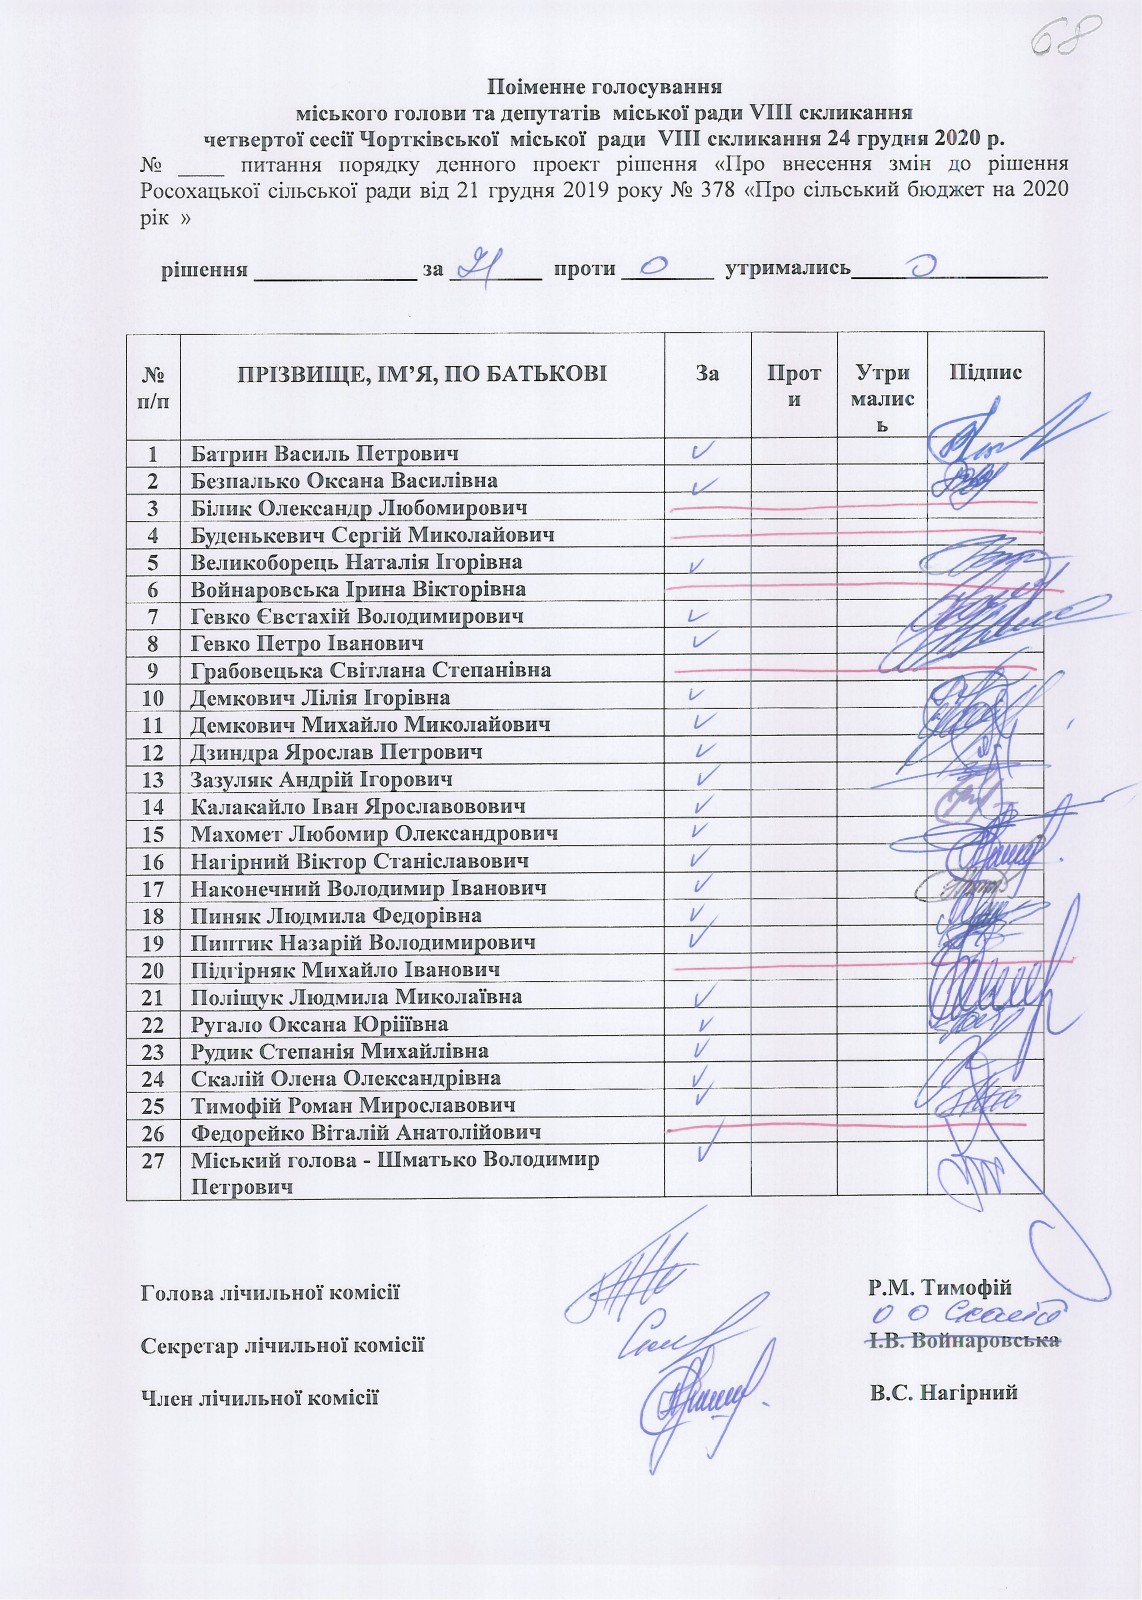 68
Поіменне голосування
міського голови та депутатів міської ради VIII скликання
четвертої сесії Чортківської міської ради VIII скликання 24 грудня 2020 р.
№ ____ питання порядку денного проект рішення «Про внесення змін до рішення
Росохацької сільської ради від 21 грудня 2019 року № 378 «Про сільський бюджет на 2020
рік »
рішення ______________ за 21 проти 0 утримались 0
№ п/п ПРІЗВИЩЕ, ІМ’Я, ПО БАТЬКОВІ За Проти Утримались Підпис
1 Батрин Василь Петрович ✓
2 Безпалько Оксана Василівна ✓
3 Білик Олександр Любомирович
4 Буденькевич Сергій Миколайович
5 Великоборець Наталія Ігорівна ✓
6 Войнаровська Ірина Вікторівна
7 Гевко Євстахій Володимирович ✓
8 Гевко Петро Іванович ✓
9 Грабовецька Світлана Степанівна
10 Демкович Лілія Ігорівна ✓
11 Демкович Михайло Миколайович ✓
12 Дзиндра Ярослав Петрович ✓
13 Зазуляк Андрій Ігорович ✓
14 Калакайло Іван Ярославовович ✓
15 Махомет Любомир Олександрович ✓
16 Нагірний Віктор Станіславович ✓
17 Наконечний Володимир Іванович ✓
18 Пиняк Людмила Федорівна ✓
19 Пиптик Назарій Володимирович ✓
20 Підгірняк Михайло Іванович
21 Поліщук Людмила Миколаївна ✓
22 Ругало Оксана Юріїівна ✓
23 Рудик Степанія Михайлівна ✓
24 Скалій Олена Олександрівна ✓
25 Тимофій Роман Мирославович ✓
26 Федорейко Віталій Анатолійович
27 Міський голова - Шматько Володимир ✓
Петрович
Голова лічильної комісії Р.М. Тимофій
О О Скалій
Секретар лічильної комісії І.В. Войнаровська
Член лічильної комісії В.С. Нагірний